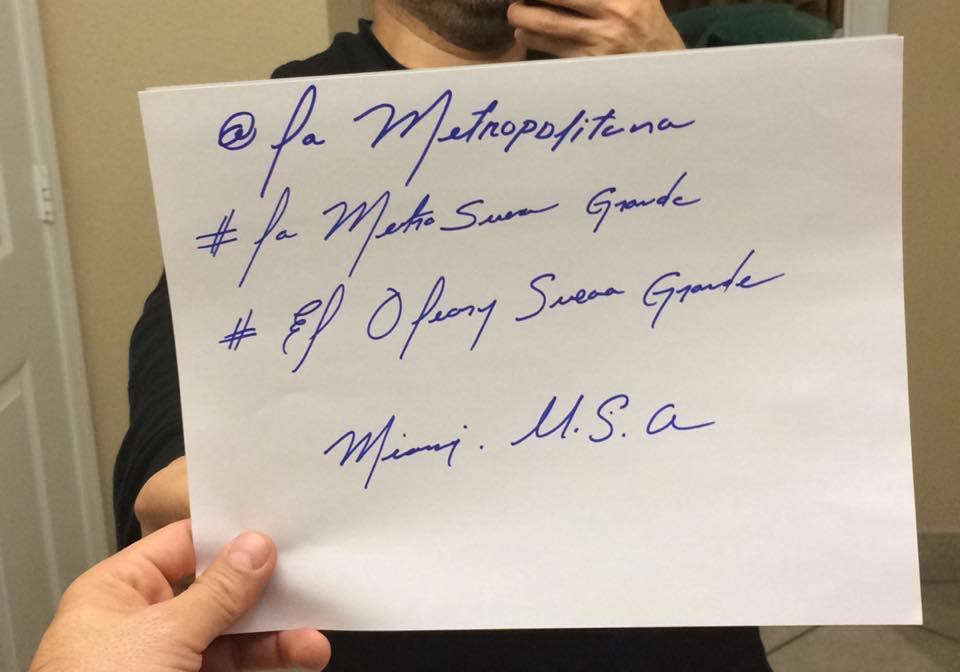 @la Metropolitana
#la Metro Suena Grande
# El Oleary Suena Grande
Miami. U.S.A